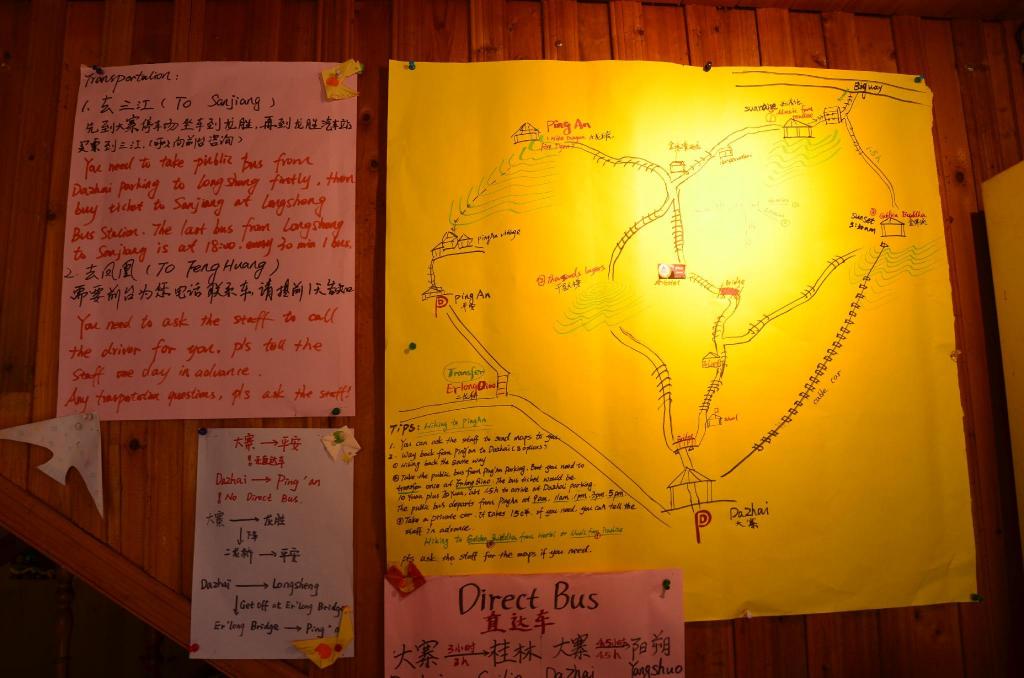 Transportation:
1. 去三江 (To Sanjiang)
先到大寨停车场坐车到龙胜,再到龙胜汽车站
买票到三江.
You need to take public bus from
Dazhai parking to Longsheng firstly, then
buy ticket to Sanjiang at Longsheng
Bus Station. The last bus from Longsheng
to Sanjiang is at 18:00. every 30 min 1 bus.
2. 去凤凰 (To FengHuang)
需要前台为您电话联系车,请提前1天告知
You need to ask the staff to call
the driver for you, pls tell the
staff one day in advance.
Any trasportation questions, pls ask the staff!
大寨 → 平安
! 无直达车
Dazhai → Ping'an
! No Direct Bus.
大寨 → 龙胜
二龙桥 → 平安
Dazhai → Longsheng
Get off at Er'long Bridge
Er'long Bridge → Ping'a
Big way
sunrise
Music from
Paradise
Ping An
1.5h
Golden Buddha
sunset
PingAn village
P Ping An
平安
Thousands layers
Bridge
Transfer
ErlongQiao
二龙桥
cable car
P Dazhai
大寨
Tips: Hiking to PingAn
1. You can ask the staff to send maps to you.
2. Way back from Ping'an to Dazhai: 3 options:
① Hiking back the same way
② Take the public bus from Ping'an Parking. But you need to
transfer once at ErlongQiao. The bus ticket would be
10 Yuan plus 20 Yuan, abt 1.5h to arrive at Dazhai parking.
The public bus departs from PingAn at 9am, 11am, 1pm, 3pm, 5pm.
③ Take a private car. It takes 150¥. If you need, you can tell the
staff in advance.
Hiking to Golden Buddha from Hostel or Music from Paradise
pls ask the staff for the maps if you need.
Direct Bus
直达车
大寨 3小时 3h → 桂林 大寨 4.5小时 4.5h → 阳朔
Dazhai Guilin Dazhai Yangshuo